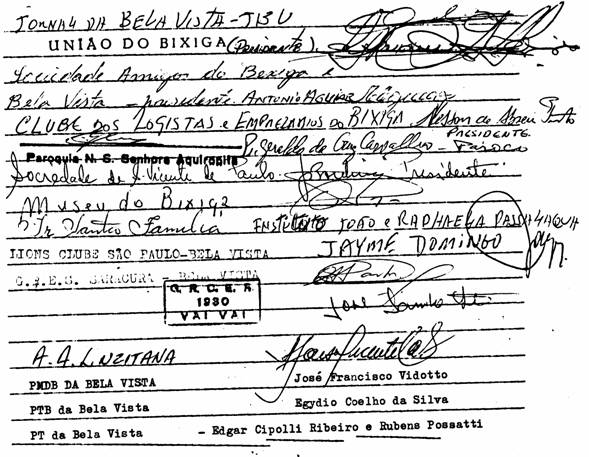 JORNAL DA BELA VISTA - JBV
UNIÃO DO BIXIGA (Presidente)
Sociedade Amigos do Bexiga e
Bela Vista - presidente ANTONIO AGUIAR
CLUBE DOS LOGISTAS e EMPRESARIOS DO BIXIGA Nelson de Abreu Pinto
PRESIDENTE
Pe. Geraldo da Cruz Carvalho - Pároco
Paroquia N. S. Senhora Aquiropita
Sociedade de S. Vicente de Paulo Presidente
Museu do Bixiga
INSTITUTO JOÃO e RAPHAELA PASSALAQUA
JAYME DOMINGO
LIONS CLUBE SÃO PAULO-BELA VISTA
G.R.E.S. SARACURA - BELA VISTA
G. R. C. E. S.
1930
VAI VAI
A. A. LUZITANA
PMDB DA BELA VISTA José Francisco Vidotto
PTB da Bela Vista Egydio Coelho da Silva
PT da Bela Vista - Edgar Cipolli Ribeiro e Rubens Possatti